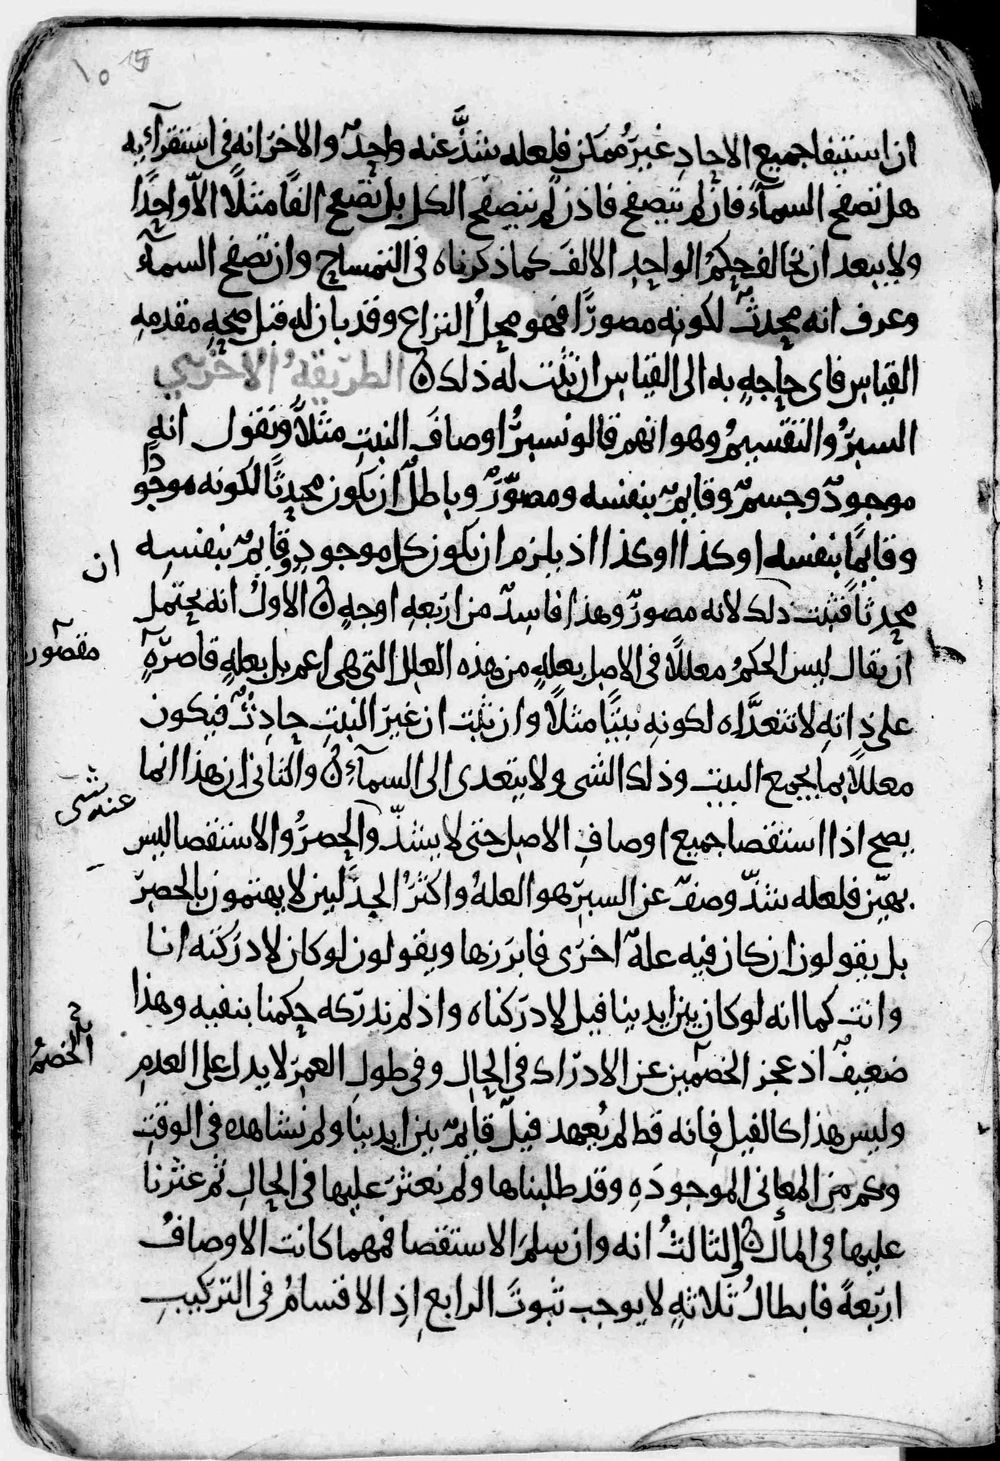 ١٥ 15
ان استيفا جميع الاحاد غير ممكن فلعله شذ عنه واحد والاخر انه في استقرآيه
هل تصفح السمآء فان لم يتصفح فاذن لم يتصفح الكل بل تصفح الفا مثلا الا واحدا
ولا يبعد ان يخالف حكم الواحد الالف كما ذكرناه في التمساح وان تصفح السمآء
وعرف انه محدث لكونه مصورا فهو محل النزاع وقد بان له قبل صحه مقدمه
القياس فاى حاجه به الى القياس ان ثبت له ذلك ن الطريقه الاخرى
السبر والتقسيم وهو انهم قالو نسبر اوصاف البيت مثلا ونقول انه
موجود وجسم وقايم بنفسه ومصور وباطل ان يكون محدثا لكونه موجودا
وقايما بنفسه او كذا او كذا اذ يلزم ان يكون كل موجود وقايم بنفسه
محدثا فثبت ذلك لانه مصور وهذا فاسد من اربعه اوجه ن الاول انه يحتمل
ان
ان يقال ليس الحكم معللا في الاصل بعله من هذه العلل التى هى اعم بل بعله قاصره
مقصوره
على ذاته لا تتعداه لكونه بيتا مثلا وان ثبت ان غير البيت حادث فيكون
معللا بما يجمع البيت وذلك الشى ولا يتعدى الى السمآء ن والثانى ان هذا انما
يصح اذا استقصا جميع اوصاف الاصل حتى لا يشذ والحصر والاستقصا ليس
عنه شى
بهين فلعله شذ وصف عن السبر هو العله واكثر الجدليين لا يهتمون بالحصر
بل يقولون ان كان فيه علة اخرى فابرزها ويقولون لو كان لادركته انا
وانت كما انه لو كان بين ايدينا فيل لادركناه واذ لم ندركه حكمنا بنفيه وهذا
ضعيف اذ عجز الخصمين عن الادراك في الحال وفي طول العمر لا يدل على العدم
الخصم
وليس هذا كالفيل فانه قط لم يعهد فيل قايم بين ايدينا ولم نشاهده في الوقت
وكم من المعانى الموجوده وقد طلبناها ولم نعثر عليها في الحال ثم عثرنا
عليها في المآل ن والثالث انه وان سلم الاستقصا فمهما كانت الاوصاف
اربعة فابطال ثلاثه لا يوجب ثبوت الرابع اذ الاقسام في التركيب